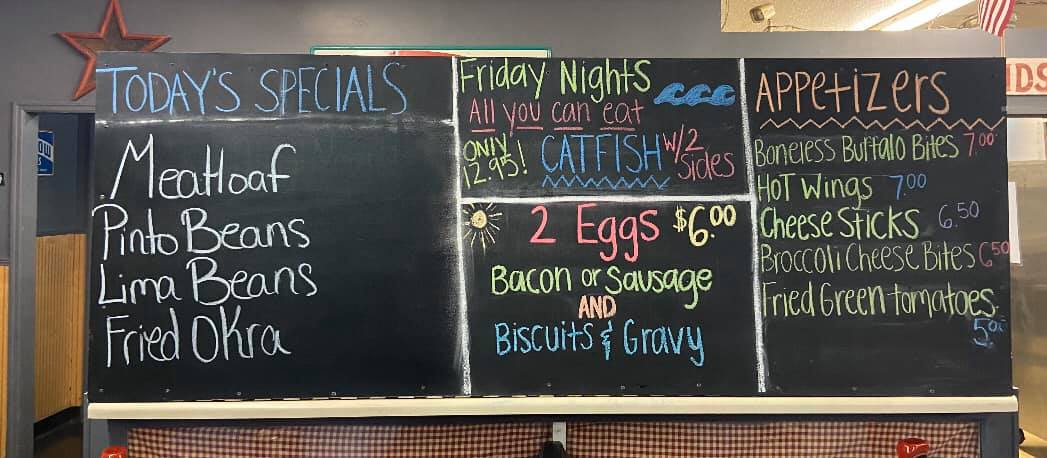 TODAY'S SPECIALS
Meatloaf
Pinto Beans
Lima Beans
Fried OKra
Friday Nights
All you can eat
ONLY
12.95!
CATFISH
W/2
Sides
2 Eggs $6.00
Bacon or Sausage
AND
Biscuits & Gravy
APPEtizERS
Boneless Buffalo Bites 7.00
HOT Wings 7.00
Cheese Sticks 6.50
Broccoli Cheese Bites 6.50
Fried Green tomatoes
5.00
DS